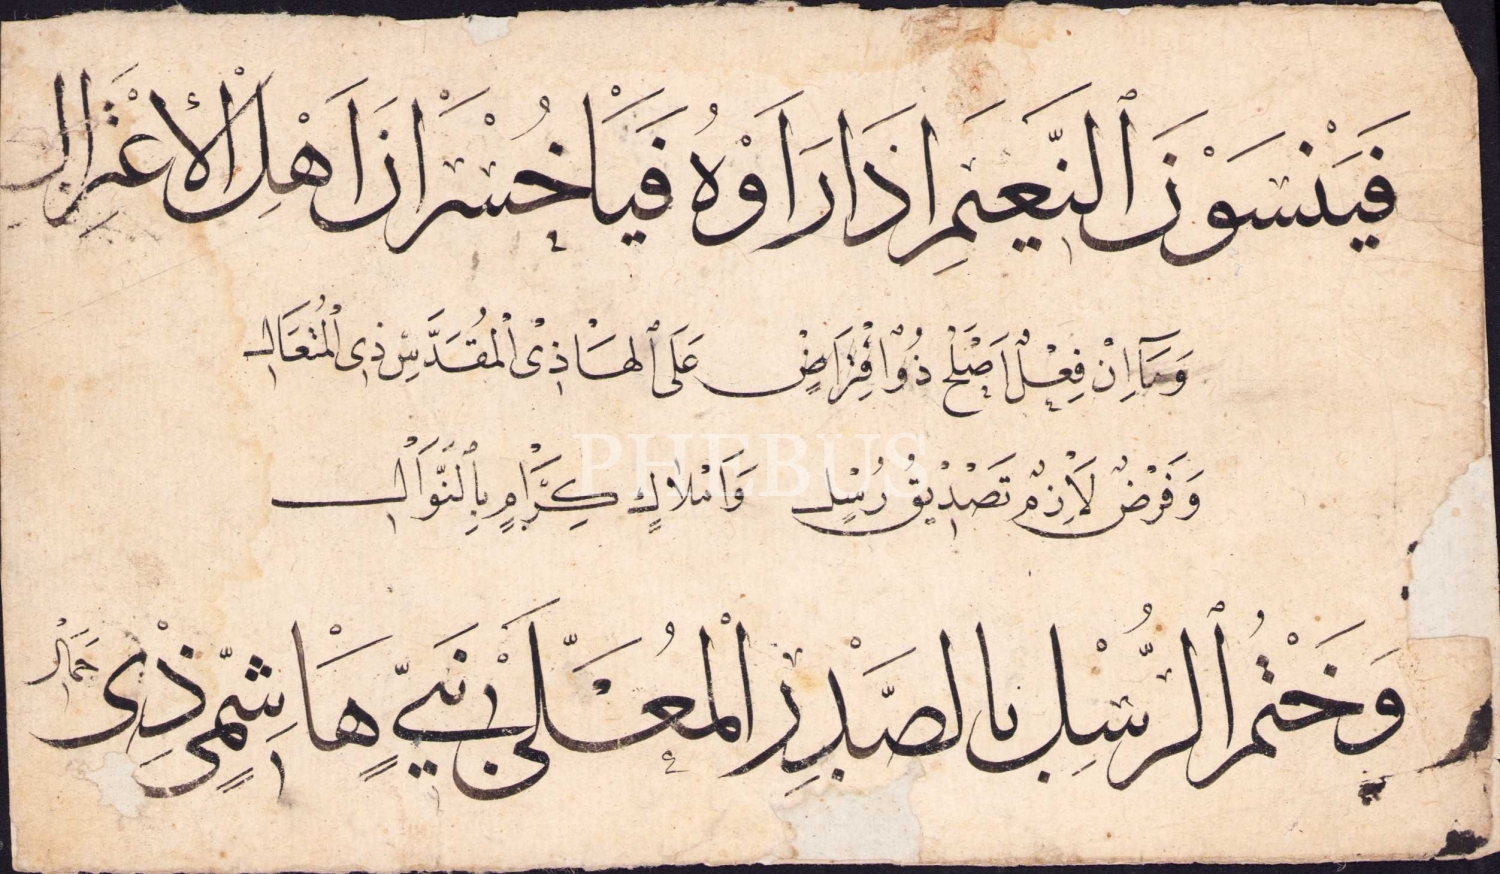 فَيَنْسَوْنَ ٱلنَّعِيمَ اِذَا رَاَوْهُ فَيَاخُسْرَانَ اَهْلِ الْأِعْتِزَالِ
وَمَآاِنْ فِعْلٌ اَصْلَحُ ذُوافْتِرَاضٍ عَلَى ٱلهَاذِى ٱلْمُقَدَّسِ ذِى الْمُتَعَالِ
وَفَرْضٌ لَازِمٌ تَصْدِيقُ رُسْلٍ وَاَمْلَاكٍ كِرَامٍ بِٱلنَّوَالِ
وَخَتْمُ ٱلرُّسْلِ بِالصَّدْرِ الْمُعَلَّى نَبِيٍّ هَاشِمِيٍّ ذِى جَمَالِ
PHEBUS